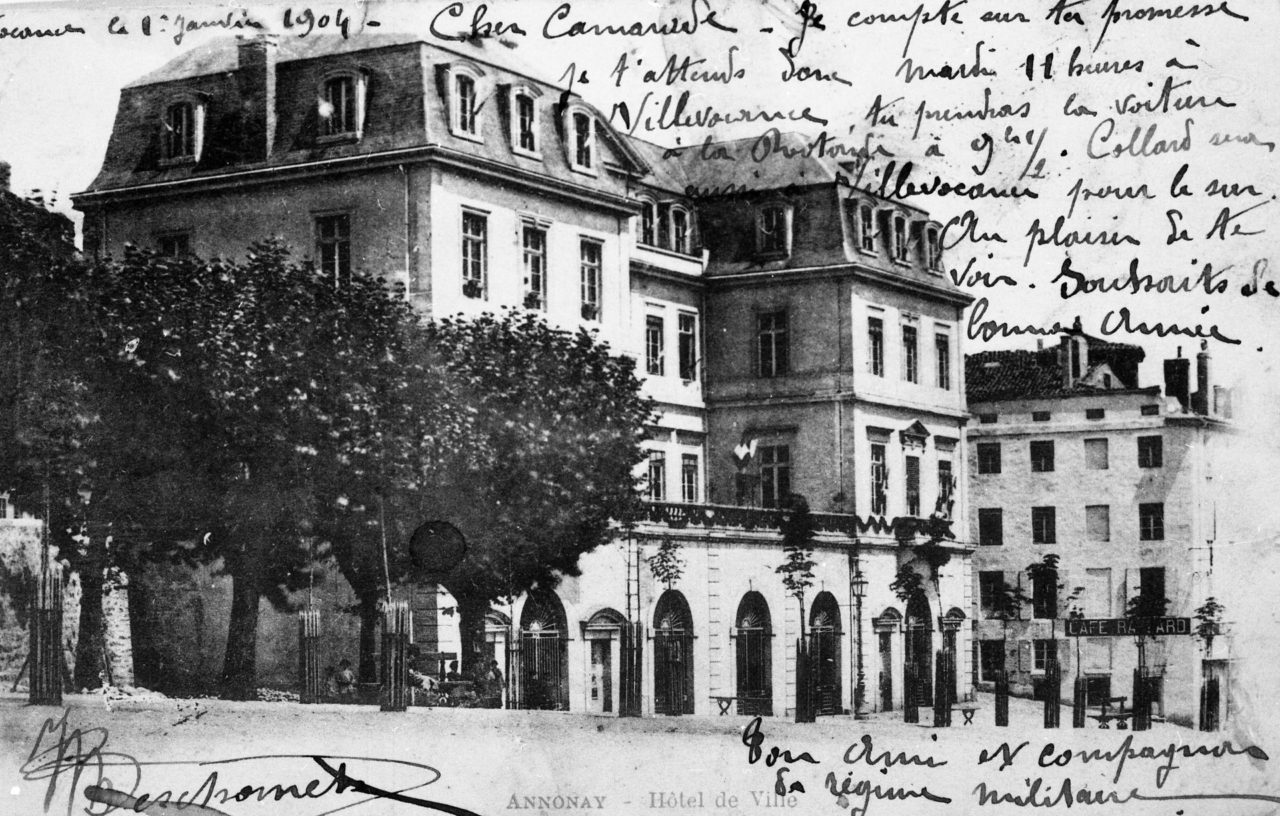 ocance le 1er Janvier 1904 -
Cher Camarade - Je compte sur ta promesse
je t'attends donc mardi 11 heures à
Villevocance, tu prendras la voiture
à la Rotonde à 9hes 1/2. Collard sera
aussi à Villevocance pour le sur.
Au plaisir de te
voir. Souhaits de
bonne Année
CAFÉ
Ton Ami et compagnon
de régime militaire
Deschomets
ANNONAY - Hôtel de Ville